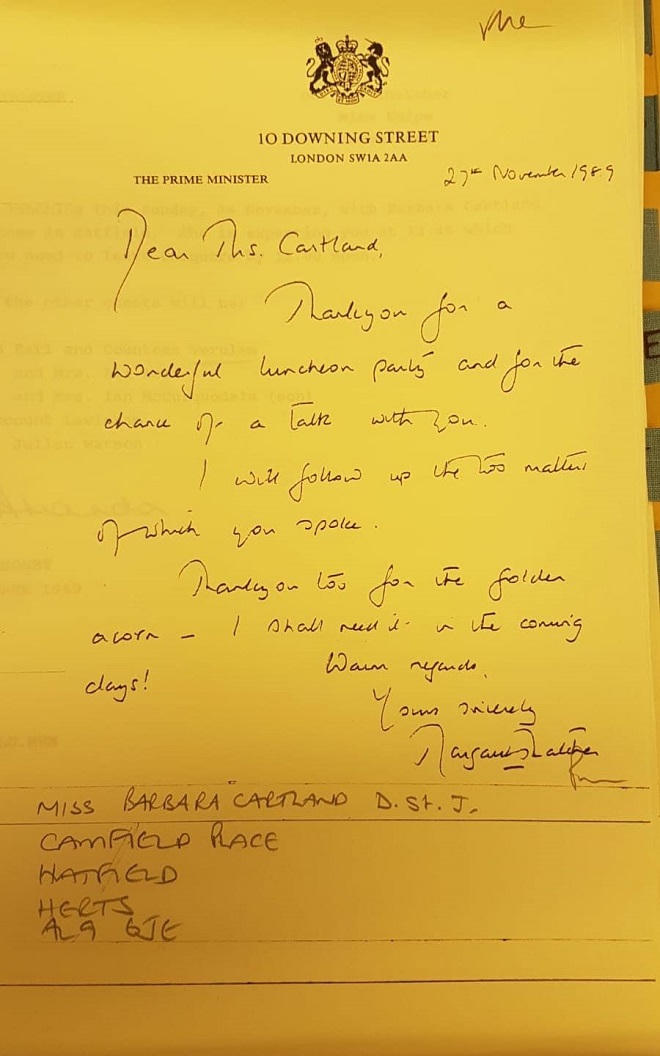 10 DOWNING STREET
LONDON SW1A 2AA
THE PRIME MINISTER
27th November 1989
Dear Ms. Cartland,
Thankyou for a
wonderful luncheon party and for the
chance of a talk with you.
I will follow up the two matters
of which you spoke.
Thankyou too for the golden
acorn – I shall need it in the coming
days!
Warm regards,
Yours sincerely
Margaret Thatcher
MISS BARBARA CARTLAND D. St. J.
CAMFIELD PLACE
HATFIELD
HERTS
AL9 6JE
E